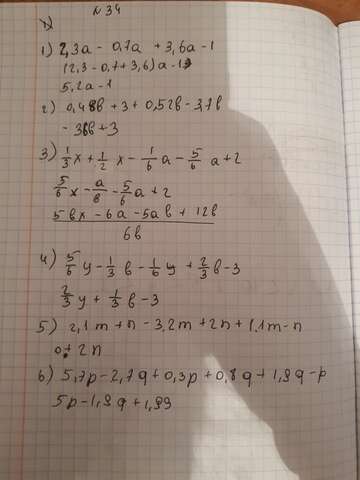 №34
1) 2,3a - 0,7a + 3,6a - 1
(2,3 - 0,7 + 3,6)a - 1
5,2a - 1
2) 0,48в + 3 + 0,52в - 3,7в
- 3в + 3
3) 1/3 x + 1/2 x - 1/6 a - 5/6 a + 2
5/6 x - a/в - 5/6 a + 2
5вx - 6a - 5aв + 12в
6в
4) 5/6 y - 1/3 в - 1/6 y + 2/3 в - 3
2/3 y + 1/3 в - 3
5) 2,1m + n - 3,2m + 2n + 1,1m - n
0 + 2n
6) 5,7p - 2,7q + 0,3p + 0,8q + 1,9q - p
5p - 1,9q + 1,99